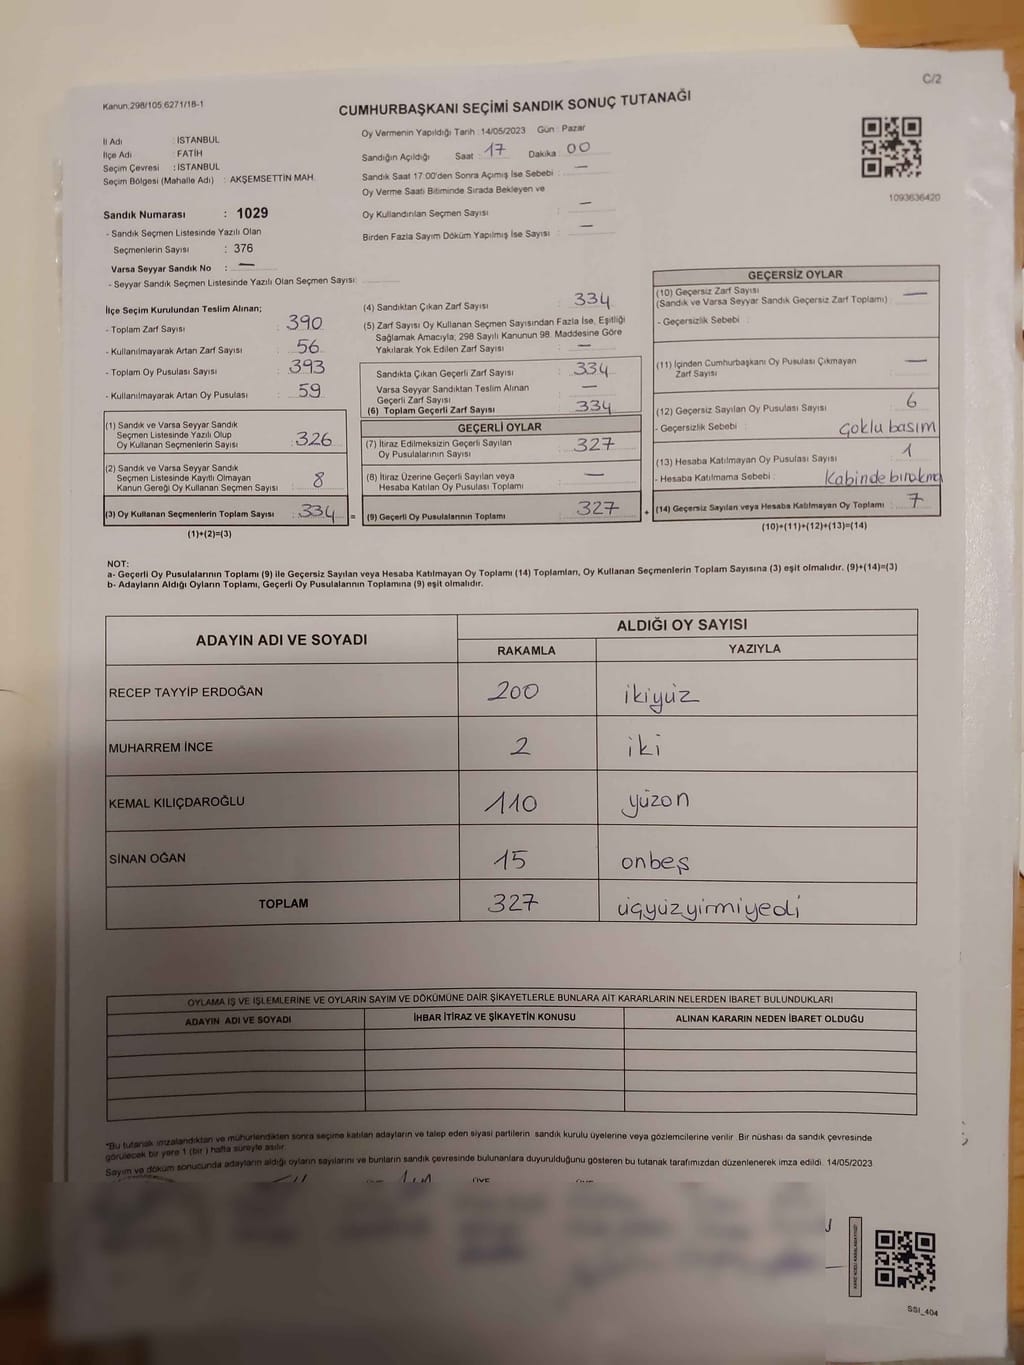 C/2
Kanun:298/105,6271/18-1
CUMHURBAŞKANI SEÇİMİ SANDIK SONUÇ TUTANAĞI
İl Adı : İSTANBUL
İlçe Adı : FATİH
Seçim Çevresi : İSTANBUL
Seçim Bölgesi (Mahalle Adı) : AKŞEMSETTİN MAH.
Oy Vermenin Yapıldığı Tarih : 14/05/2023 Gün : Pazar
Sandığın Açıldığı Saat : 17 Dakika : 00
Sandık Saat 17:00'den Sonra Açımış İse Sebebi : —
Oy Verme Saati Bitiminde Sırada Bekleyen ve
Oy Kullandırılan Seçmen Sayısı : —
Birden Fazla Sayım Döküm Yapılmış İse Sayısı : —
1093636420
Sandık Numarası : 1029
- Sandık Seçmen Listesinde Yazılı Olan
Seçmenlerin Sayısı : 376
Varsa Seyyar Sandık No : —
- Seyyar Sandık Seçmen Listesinde Yazılı Olan Seçmen Sayısı:
İlçe Seçim Kurulundan Teslim Alınan;
- Toplam Zarf Sayısı : 390
- Kullanılmayarak Artan Zarf Sayısı : 56
- Toplam Oy Pusulası Sayısı : 393
- Kullanılmayarak Artan Oy Pusulası : 59
(1) Sandık ve Varsa Seyyar Sandık
Seçmen Listesinde Yazılı Olup
Oy Kullanan Seçmenlerin Sayısı : 326
(2) Sandık ve Varsa Seyyar Sandık
Seçmen Listesinde Kayıtlı Olmayan
Kanun Gereği Oy Kullanan Seçmen Sayısı : 8
(3) Oy Kullanan Seçmenlerin Toplam Sayısı : 334 =
(1)+(2)=(3)
(4) Sandıktan Çıkan Zarf Sayısı : 334
(5) Zarf Sayısı Oy Kullanan Seçmen Sayısından Fazla İse, Eşitliği
Sağlamak Amacıyla; 298 Sayılı Kanunun 98. Maddesine Göre
Yakılarak Yok Edilen Zarf Sayısı : —
Sandıkta Çıkan Geçerli Zarf Sayısı : 334
Varsa Seyyar Sandıktan Teslim Alınan
Geçerli Zarf Sayısı : —
(6) Toplam Geçerli Zarf Sayısı : 334
GEÇERLİ OYLAR
(7) İtiraz Edilmeksizin Geçerli Sayılan
Oy Pusulalarının Sayısı : 327
(8) İtiraz Üzerine Geçerli Sayılan veya
Hesaba Katılan Oy Pusulası Toplamı : —
(9) Geçerli Oy Pusulalarının Toplamı : 327 +
GEÇERSİZ OYLAR
(10) Geçersiz Zarf Sayısı
(Sandık ve Varsa Seyyar Sandık Geçersiz Zarf Toplamı) : —
- Geçersizlik Sebebi :
(11) İçinden Cumhurbaşkanı Oy Pusulası Çıkmayan
Zarf Sayısı : —
(12) Geçersiz Sayılan Oy Pusulası Sayısı : 6
- Geçersizlik Sebebi : çoklu basım
(13) Hesaba Katılmayan Oy Pusulası Sayısı : 1
- Hesaba Katılmama Sebebi : Kabinde bırakma
(14) Geçersiz Sayılan veya Hesaba Katılmayan Oy Toplamı : 7
(10)+(11)+(12)+(13)=(14)
NOT:
a- Geçerli Oy Pusulalarının Toplamı (9) ile Geçersiz Sayılan veya Hesaba Katılmayan Oy Toplamı (14) Toplamları, Oy Kullanan Seçmenlerin Toplam Sayısına (3) eşit olmalıdır. (9)+(14)=(3)
b- Adayların Aldığı Oyların Toplamı, Geçerli Oy Pusulalarının Toplamına (9) eşit olmalıdır.
ADAYIN ADI VE SOYADI ALDIĞI OY SAYISI
RAKAMLA YAZIYLA
RECEP TAYYİP ERDOĞAN 200 ikiyüz
MUHARREM İNCE 2 iki
KEMAL KILIÇDAROĞLU 110 yüzon
SİNAN OĞAN 15 onbeş
TOPLAM 327 üçyüzyirmiyedi
OYLAMA İŞ VE İŞLEMLERİNE VE OYLARIN SAYIM VE DÖKÜMÜNE DAİR ŞİKAYETLERLE BUNLARA AİT KARARLARIN NELERDEN İBARET BULUNDUKLARI
ADAYIN ADI VE SOYADI İHBAR İTİRAZ VE ŞİKAYETİN KONUSU ALINAN KARARIN NEDEN İBARET OLDUĞU
*Bu tutanak imzalandıktan ve mühürlendikten sonra seçime katılan adayların ve talep eden siyasi partilerin sandık kurulu üyelerine veya gözlemcilerine verilir. Bir nüshası da sandık çevresinde
görülecek bir yere 1 (bir) hafta süreyle asılır.
Sayım ve döküm sonucunda adayların aldığı oyların sayılarını ve bunların sandık çevresinde bulunanlara duyurulduğunu gösteren bu tutanak tarafımızdan düzenlenerek imza edildi. 14/05/2023
SSI_404